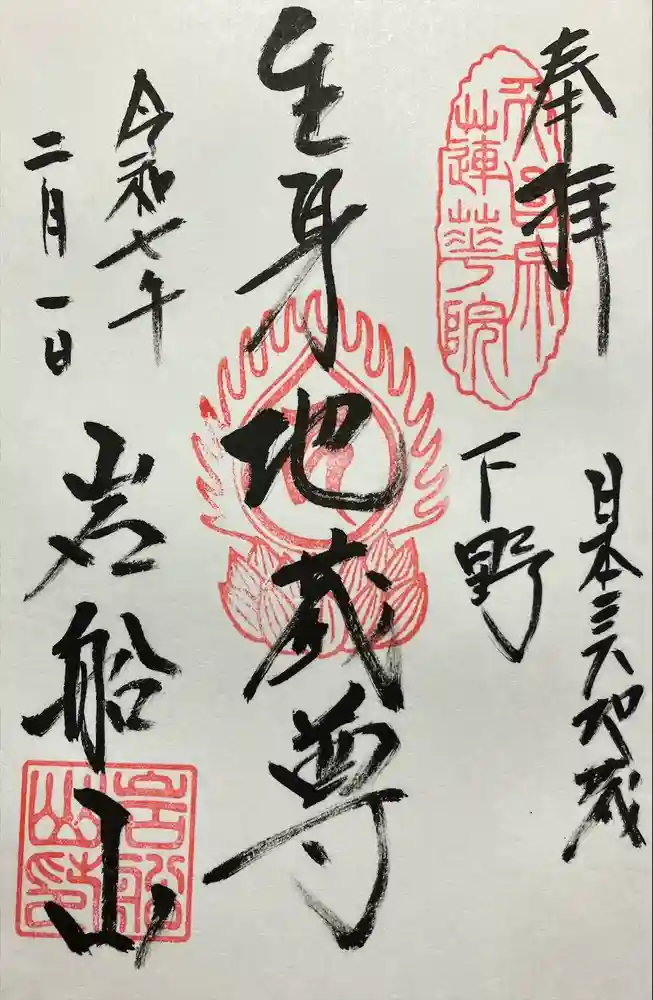 奉拝
日本三大地蔵
下野
生身地蔵尊
令和七年
二月一日
岩船山
蓮華院
岩船
山印